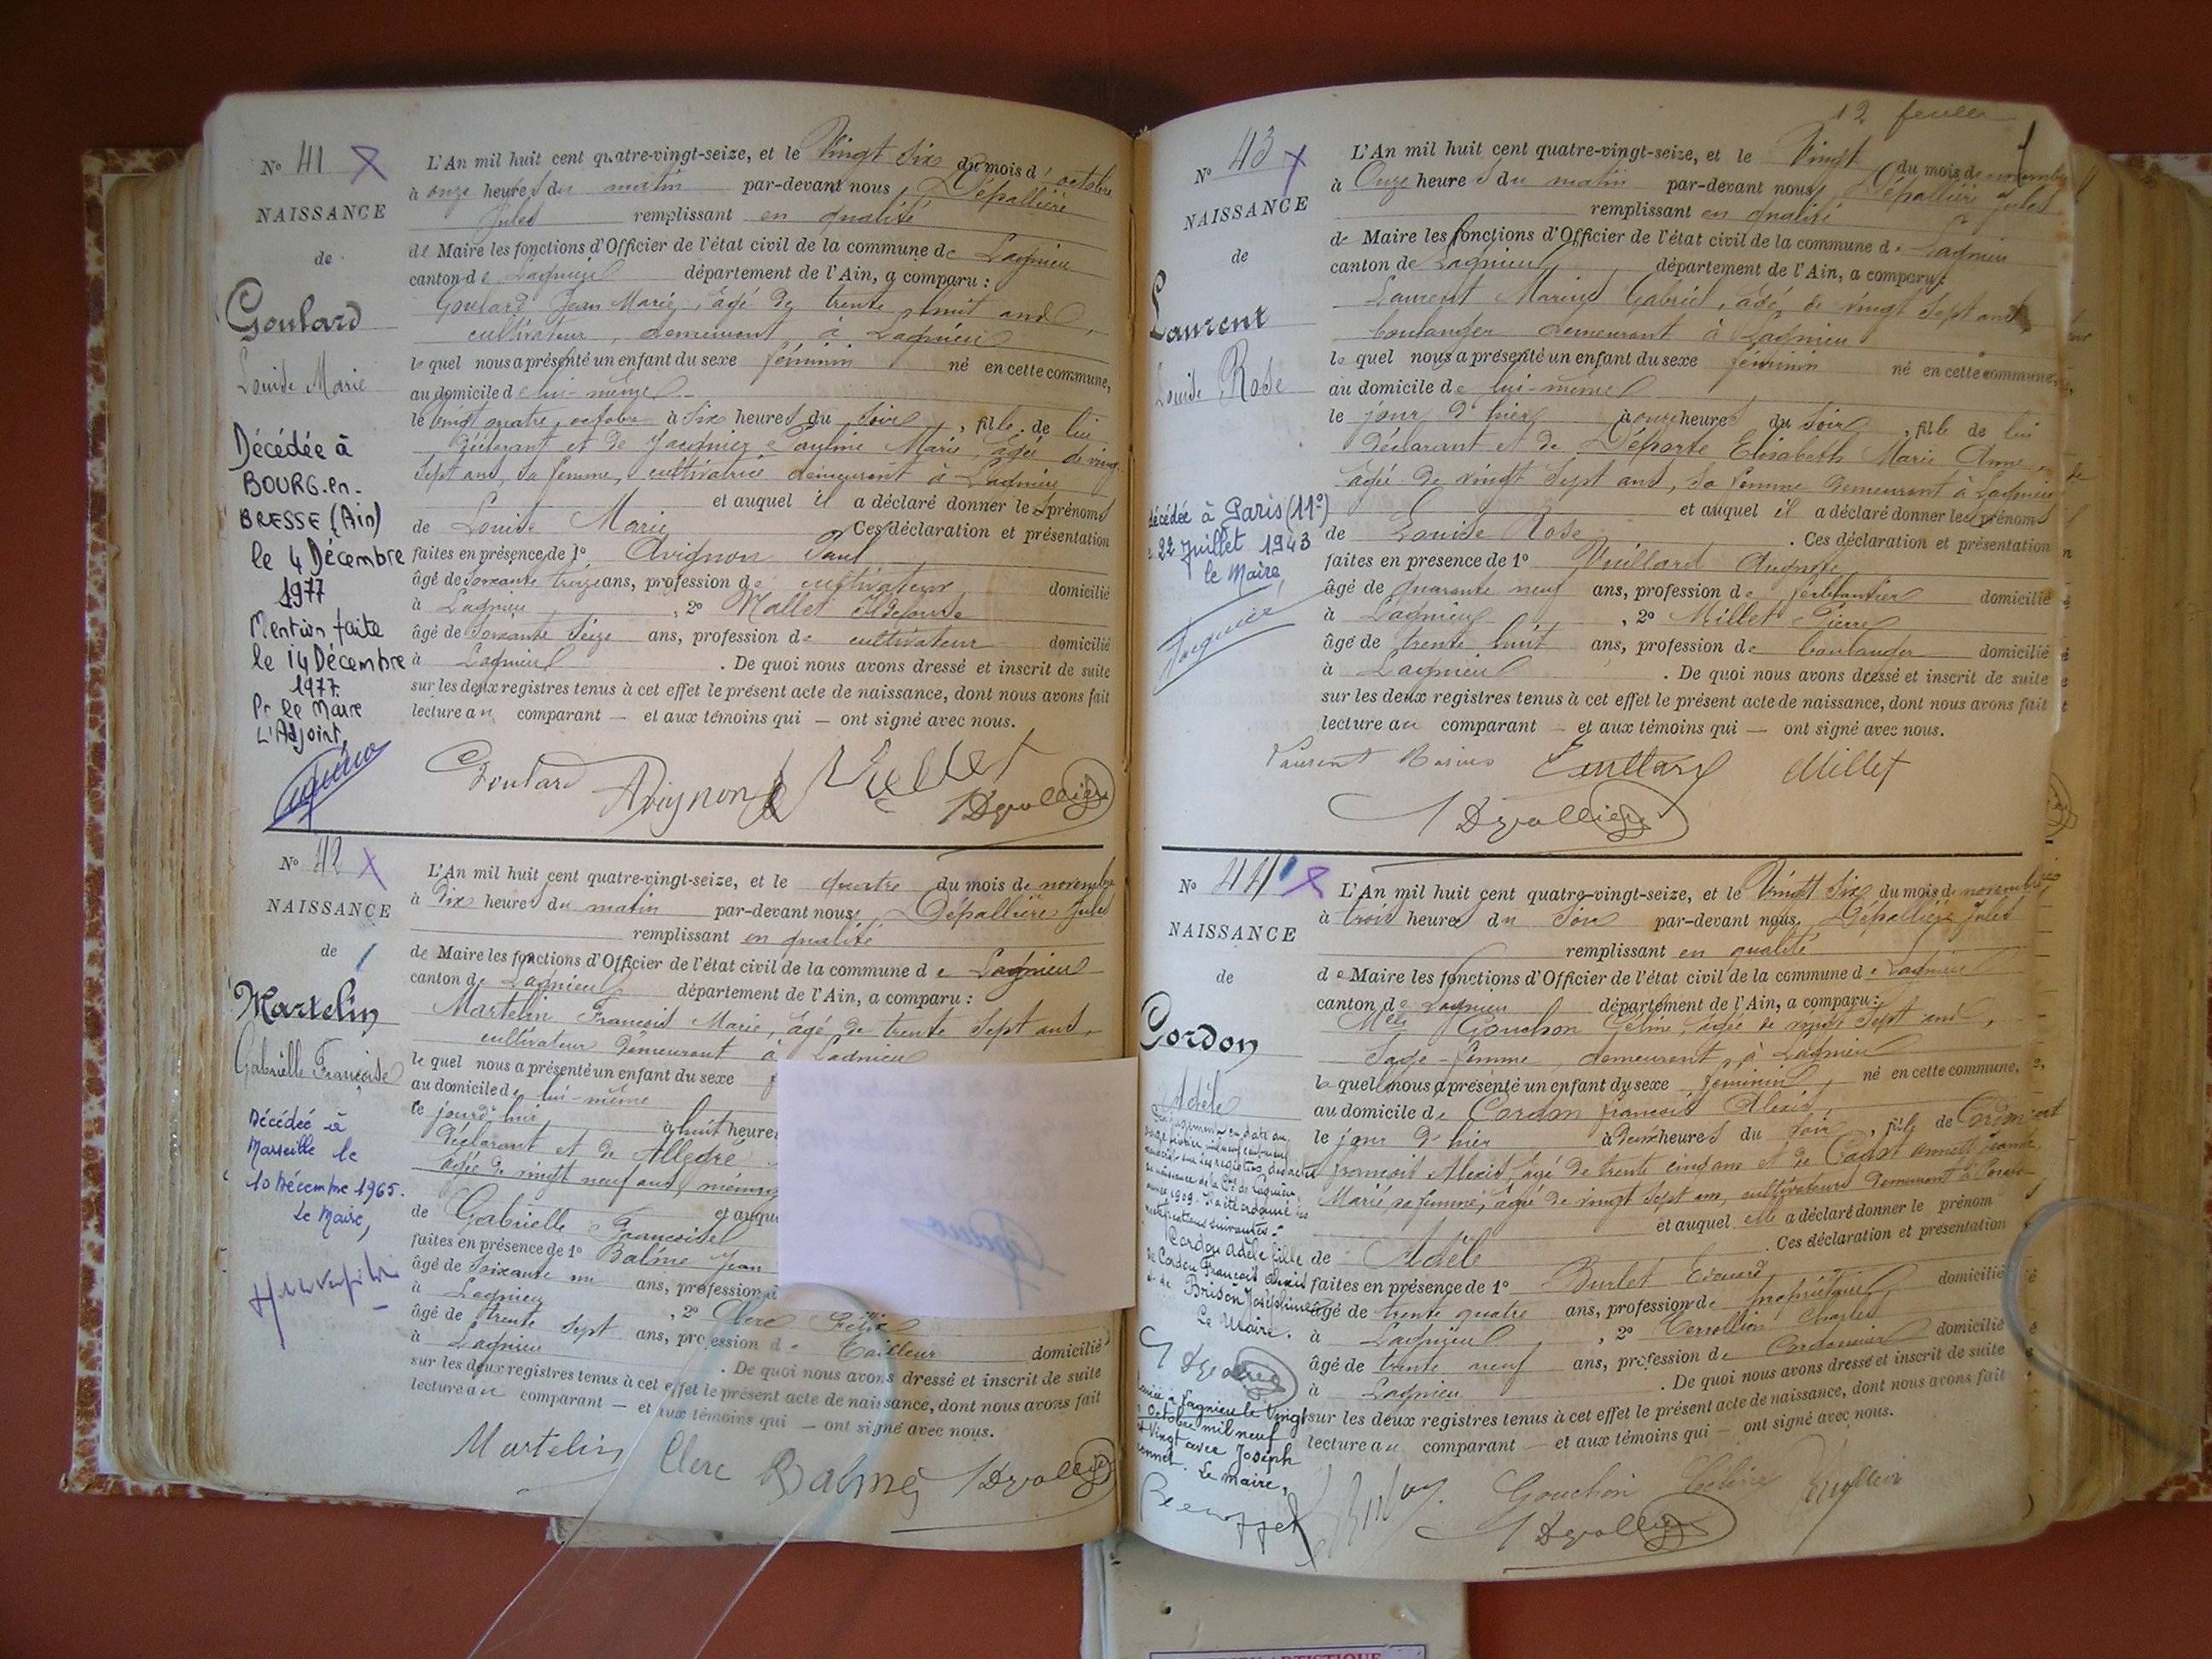 N° 41
NAISSANCE
de
Goulard
Louise Marie
Décédée à
BOURG-en-
BRESSE (Ain)
le 4 Décembre
1977
Mention faite
le 14 Décembre
1977.
Pr le Maire
L'Adjoint,
L'An mil huit cent quatre-vingt-seize, et le Vingt six du mois d'octobre
à onze heures du matin par-devant nous, Dépallière
Jules remplissant en qualité
de Maire les fonctions d'Officier de l'état civil de la commune de Lagnieu
canton de Lagnieu département de l'Ain, a comparu :
Goulard Jean Marie, âgé de trente huit ans,
cultivateur, demeurant à Lagnieu
lequel nous a présenté un enfant du sexe féminin né en cette commune,
au domicile de lui-même
le vingt quatre octobre à six heures du soir, fille de lui
déclarant et de Jacquier Pauline Marie, âgée de vingt
sept ans, sa femme, cultivatrice demeurant à Lagnieu
et auquel il a déclaré donner les prénoms
de Louise Marie Ces déclaration et présentation
faites en présence de 1° Avignon Paul
âgé de soixante treize ans, profession de cultivateur domicilié
à Lagnieu, 2° Mallet
âgé de soixante seize ans, profession de cultivateur domicilié
à Lagnieu. De quoi nous avons dressé et inscrit de suite
sur les deux registres tenus à cet effet le présent acte de naissance, dont nous avons fait
lecture au comparant — et aux témoins qui — ont signé avec nous.
Goulard Avignon Mallet JDépallière
N° 42
NAISSANCE
de
Martelin
Gabrielle Françoise
Décédée à
Marseille le
10 Décembre 1965.
Le Maire,
L'An mil huit cent quatre-vingt-seize, et le quatre du mois de novembre
à Dix heures du matin par-devant nous, Dépallière Jules
remplissant en qualité
de Maire les fonctions d'Officier de l'état civil de la commune de Lagnieu
canton de Lagnieu département de l'Ain, a comparu :
Martelin François Marie, âgé de trente sept ans,
cultivateur demeurant à Lagnieu
lequel nous a présenté un enfant du sexe
au domicile de lui-même
le jourd'hui à huit heures
déclarant et de Allegre
âgée de vingt neuf ans,
et auque
de Gabrielle Françoise
faites en présence de 1° Balme Jean
âgé de soixante un ans, profession
à Lagnieu, 2° Clerc Félix
âgé de trente sept ans, profession de Tailleur domicilié
à Lagnieu. De quoi nous avons dressé et inscrit de suite
sur les deux registres tenus à cet effet le présent acte de naissance, dont nous avons fait
lecture au comparant — et aux témoins qui — ont signé avec nous.
Martelin Clerc Balme JDépallière
12 feuille
N° 43
NAISSANCE
de
Laurent
Louise Rose
décédée à Paris (11e)
le 22 Juillet 1943
le Maire,
L'An mil huit cent quatre-vingt-seize, et le Vingt du mois de novembre
à Onze heures du matin par-devant nous, Dépallière Jules
remplissant en qualité
de Maire les fonctions d'Officier de l'état civil de la commune de Lagnieu
canton de Lagnieu département de l'Ain, a comparu :
Laurent Marius Gabriel, âgé de vingt sept ans
boulanger demeurant à Lagnieu
lequel nous a présenté un enfant du sexe féminin né en cette commune
au domicile de lui-même
le jour d'hier à onze heures du soir, fille de lui
déclarant et de Déporte Elisabeth Marie Anne,
âgée de vingt sept ans, sa femme demeurant à Lagnieu
et auquel il a déclaré donner les prénoms
de Louise Rose. Ces déclaration et présentation
faites en présence de 1° Vuillard Auguste
âgé de quarante neuf ans, profession de ferblantier domicilié
à Lagnieu, 2° Millet Pierre
âgé de trente huit ans, profession de boulanger domicilié
à Lagnieu. De quoi nous avons dressé et inscrit de suite
sur les deux registres tenus à cet effet le présent acte de naissance, dont nous avons fait
lecture au comparant — et aux témoins qui — ont signé avec nous.
Laurent Marius Vuillard Millet
JDépallière
N° 44
NAISSANCE
de
Cordon
Adèle
Par jugement en date du
rectifications suivantes :
Cordon Adèle fille
de Cordon François Alexis
et de Brison Joséphine
Le Maire.
Mariée à Lagnieu le Vingt
Octobre mil neuf
cent Vingt avec Joseph
Le maire,
L'An mil huit cent quatre-vingt-seize, et le Vingt six du mois de novembre
à trois heures du soir par-devant nous, Dépallière Jules
remplissant en qualité
de Maire les fonctions d'Officier de l'état civil de la commune de Lagnieu
canton de Lagnieu département de l'Ain, a comparu :
Gouchon Céline âgée de vingt sept ans,
Sage-femme, demeurant à Lagnieu
lequel nous a présenté un enfant du sexe féminin né en cette commune,
au domicile de Cordon François Alexis
le jour d'hier à deux heures du soir, fille de Cordon
françois Alexis, âgé de trente cinq ans et de
Marie sa femme, âgée de vingt sept ans, cultivateurs demeurant à
et auquel elle a déclaré donner le prénom
de Adèle. Ces déclaration et présentation
faites en présence de 1° Burlet Edouard
âgé de trente quatre ans, profession de propriétaire domicilié
à Lagnieu, 2° Charles
âgé de trente neuf ans, profession de Cordonnier domicilié
à Lagnieu. De quoi nous avons dressé et inscrit de suite
sur les deux registres tenus à cet effet le présent acte de naissance, dont nous avons fait
lecture au comparant — et aux témoins qui — ont signé avec nous.
Gouchon Céline
JDépallière